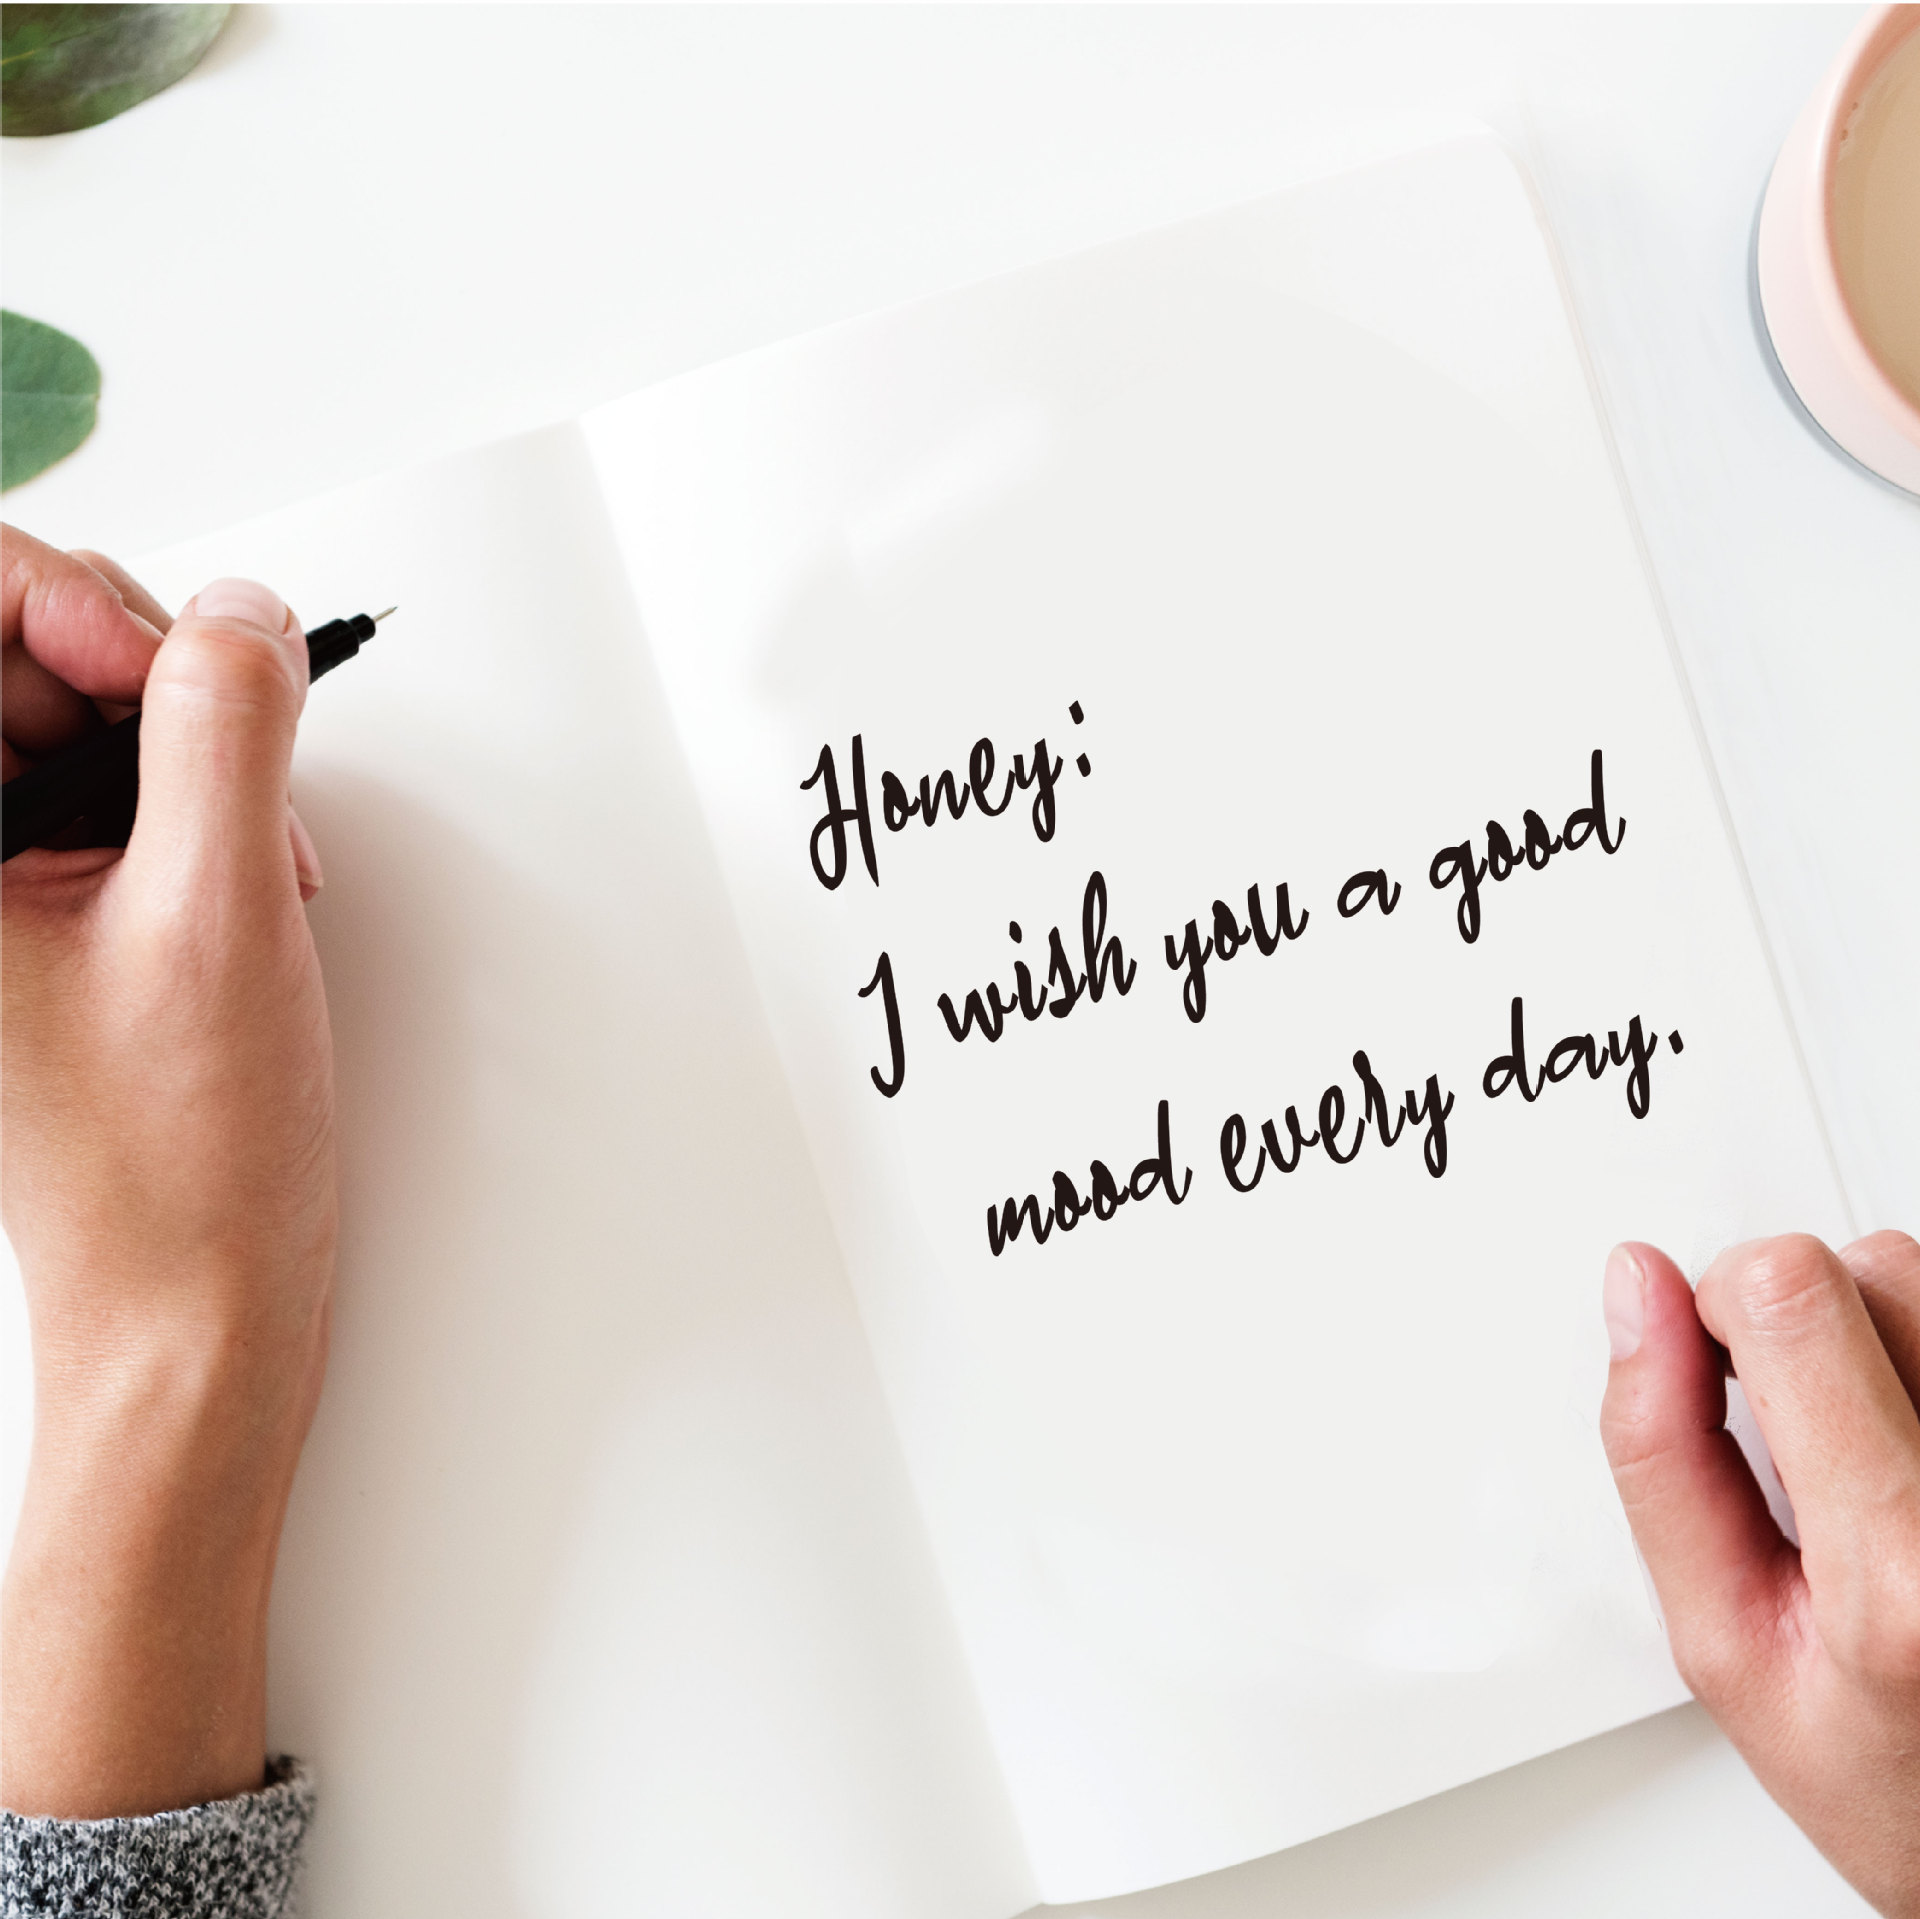 Honey:
I wish you a good
mood every day.